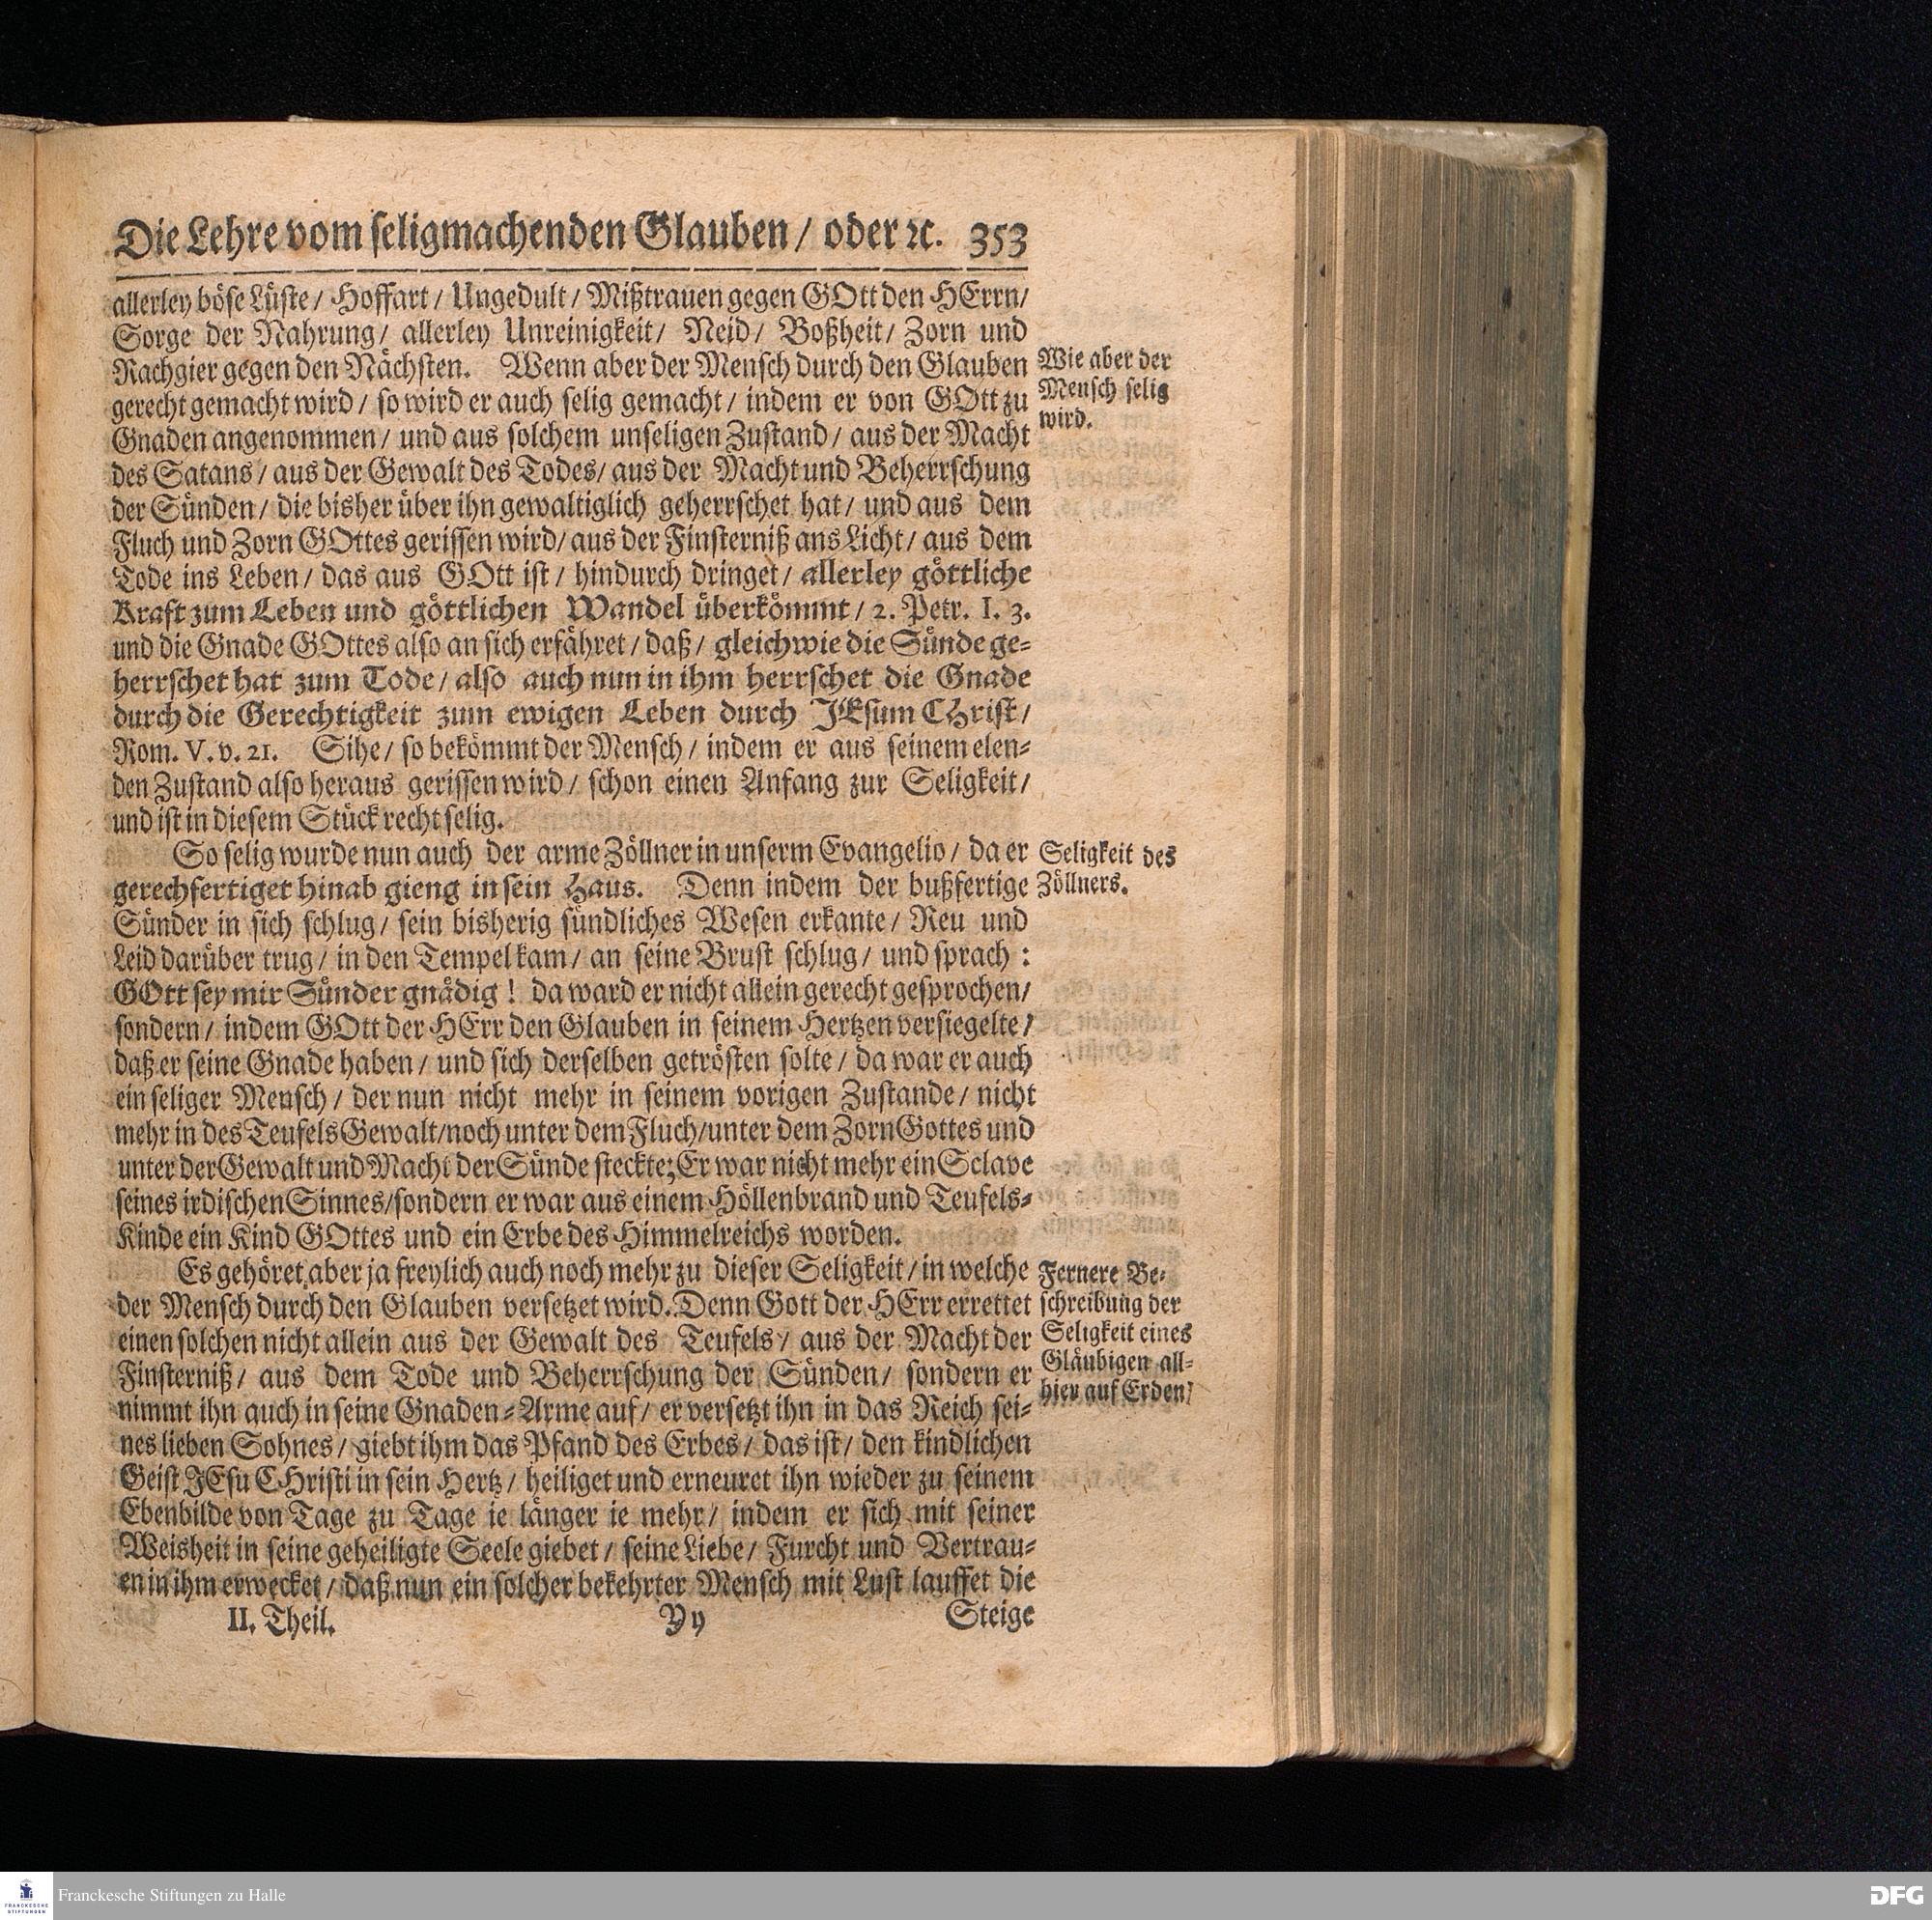 Die Lehre vom seligmachenden Glauben / oder ꝛc. 353
allerley böse Lüste / Hoffart / Ungedult / Mißtrauen gegen GOtt den HErrn/
Sorge der Nahrung / allerley Unreinigkeit / Neid / Boßheit / Zorn und
Rachgier gegen den Nächsten. Wenn aber der Mensch durch den Glauben
gerecht gemacht wird / so wird er auch selig gemacht / indem er von GOtt zu
Gnaden angenommen / und aus solchem unseligen Zustand / aus der Macht
des Satans / aus der Gewalt des Todes / aus der Macht und Beherrschung
der Sünden / die bisher über ihn gewaltiglich geherrschet hat / und aus dem
Fluch und Zorn GOttes gerissen wird / aus der Finsterniß ans Licht / aus dem
Tode ins Leben / das aus GOtt ist / hindurch dringet / allerley göttliche
Kraft zum Leben und göttlichen Wandel überkömmt / 2. Petr. I. 3.
und die Gnade GOttes also an sich erfähret / daß / gleichwie die Sünde ge-
herrschet hat zum Tode / also auch nun in ihm herrschet die Gnade
durch die Gerechtigkeit zum ewigen Leben durch JEsum CHrist /
Rom. V. v. 21. Sihe / so bekömmt der Mensch / indem er aus seinem elen-
den Zustand also heraus gerissen wird / schon einen Anfang zur Seligkeit /
und ist in diesem Stück recht selig.
So selig wurde nun auch der arme Zöllner in unserm Evangelio / da er
gerechfertiget hinab gieng in sein Haus. Denn indem der bußfertige
Sünder in sich schlug / sein bisherig sündliches Wesen erkante / Reu und
Leid darüber trug / in den Tempel kam / an seine Brust schlug / und sprach :
GOtt sey mir Sünder gnädig ! da ward er nicht allein gerecht gesprochen/
sondern / indem GOtt der HErr den Glauben in seinem Hertzen versiegelte /
daß er seine Gnade haben / und sich derselben getrösten solte / da war er auch
ein seliger Mensch / der nun nicht mehr in seinem vorigen Zustande / nicht
mehr in des Teufels Gewalt/noch unter dem Fluch/unter dem Zorn Gottes und
unter der Gewalt und Macht der Sünde steckte; Er war nicht mehr ein Sclave
seines irdischen Sinnes/sondern er war aus einem Höllenbrand und Teufels-
Kinde ein Kind GOttes und ein Erbe des Himmelreichs worden.
Es gehöret aber ja freylich auch noch mehr zu dieser Seligkeit / in welche
der Mensch durch den Glauben versetzet wird. Denn Gott der HErr errettet
einen solchen nicht allein aus der Gewalt des Teufels / aus der Macht der
Finsterniß / aus dem Tode und Beherrschung der Sünden / sondern er
nimmt ihn auch in seine Gnaden-Arme auf / er versetzt ihn in das Reich sei-
nes lieben Sohnes / giebt ihm das Pfand des Erbes / das ist / den kindlichen
Geist JEsu CHristi in sein Hertz / heiliget und erneuret ihn wieder zu seinem
Ebenbilde von Tage zu Tage ie länger ie mehr / indem er sich mit seiner
Weisheit in seine geheiligte Seele giebet / seine Liebe / Furcht und Vertrau-
en in ihm erwecket / daß nun ein solcher bekehrter Mensch mit Lust lauffet die
II. Theil. Yy Steige
Wie aber der
Mensch selig
wird.
Seligkeit des
Zöllners.
Fernere Be-
schreibung der
Seligkeit eines
Gläubigen all-
hier auf Erden/
Franckesche Stiftungen zu Halle
FRANCKESCHE
STIFTUNGEN
DFG